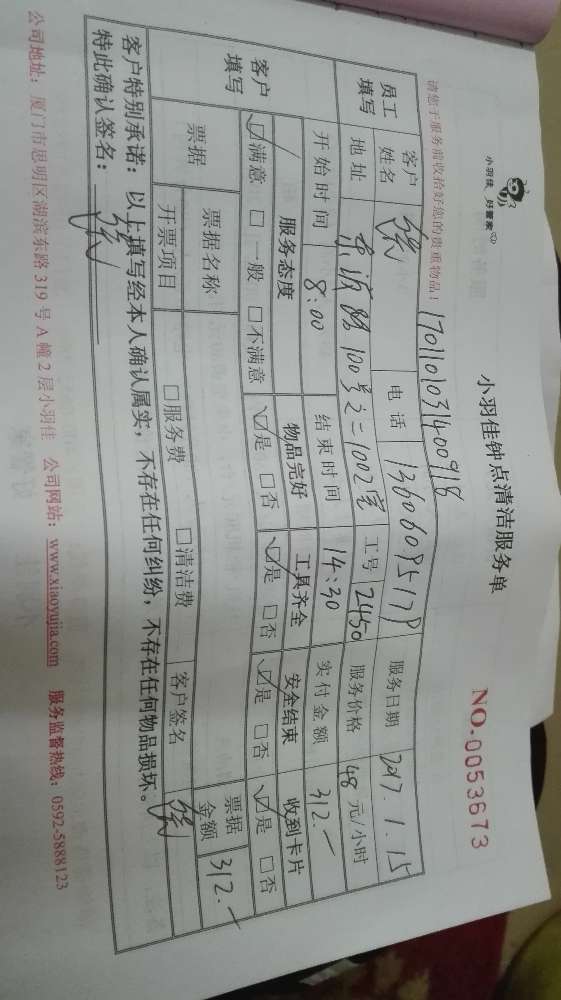 小羽佳 好管家
小羽佳钟点清洁服务单
NO.0053673
请您于服务前收拾好您的贵重物品！
1701101031400918
员工填写 客户姓名 张 电话 服务日期 2017.1.15
地址 100号之二1002室 工号 2450 服务价格 48 元/小时
开始时间 8:00 结束时间 14:30 实付金额 312.-
客户填写 服务态度 物品完好 工具齐全 安全结束 收到卡片
☑满意 □一般 □不满意 ☑是 □否 ☑是 □否 ☑是 □否 ☑是 □否
票据 票据名称 □服务费 □清洁费 票据金额 312.-
开票项目 客户签名 张
客户特别承诺：以上填写经本人确认属实，不存在任何纠纷，不存在任何物品损坏。
特此确认签名： 张
公司地址：厦门市思明区湖滨东路319号A幢2层小羽佳 公司网站：www.xiaoyujia.com 服务监督热线：0592-5888123